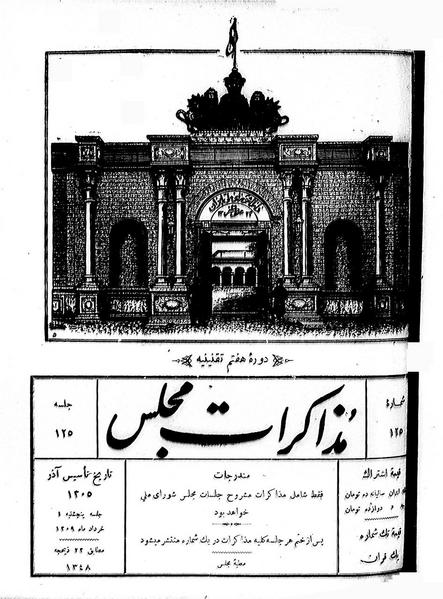 دورهٔ هفتم تقنینیه
شمارهٔ
۱۲۵
مذاکرات مجلس
جلسه
۱۲۵
قیمة اشتراك
ایران سالیانه ده تومان
دوازده تومان
قیمة تك شماره
یك قران
مندرجات
فقط شامل مذاکرات مشروح جلسات مجلس شورای ملی
خواهد بود
پس از ختم هر جلسه کلیه مذاکرات در یك شماره منتشر میشود
مطبعهٔ مجلس
تاریخ تأسیس آذر
۱۳۰۵
جلسه پنجشنبه ۱
خرداد ماه ۱۳۰۹
مطابق ۲۲ ذیحجه
۱۳۴۸